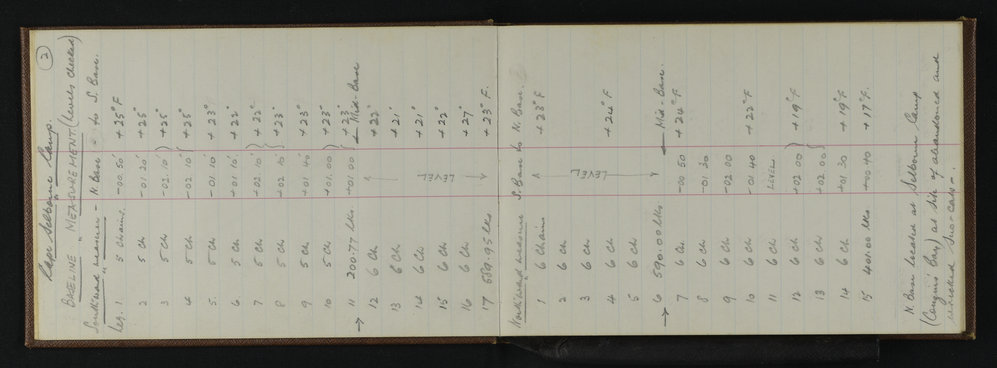 2
Cape Selborne Camp.
BASELINE MEASUREMENT (levels checked)
Southward measure - N. Base to S. Base.
Leg. 1 5 Chains -00.50' +25°F
2 5 Ch -01.20' +25°
3 5 Ch -02.10' +25°
4 5 Ch -02 10' +25°
5. 5 Ch -01.10' +23°
6 5 Ch +01.10' +22°
7 5 Ch +02.10' +22°
8 5 Ch +02 10' +23°
9 5 Ch +01 40 +23°
10 5 Ch +01.00 +23°
→ 11 200.77 lks. +01.00 +23° ← Mid-Base
12 6 Ch +22°
13 6 Ch +21°
14 6 Ch LEVEL +21°
15 6 Ch +22°
16 6 Ch +27°
17 589.95 lks +23°F.
Northward measure S. Base to N. Base.
1 6 Chains +23°F
2 6 Ch
3 6 Ch LEVEL
4 6 Ch +24°F
5 6 Ch
→ 6 590.00 lks ← Mid-Base.
7 6 Ch. -00 50 +24°F
8 6 Ch -01 30
9 6 Ch -02 00
10 6 Ch -01 40 +22°F
11 6 Ch LEVEL
12 6 Ch +02 00 +19°F
13 6 Ch +02 00
14 6 Ch +01 30 +19°F
15 401.00 lks +00 40 +17°F.
N. Base located at Selborne Camp
(Couzens' Bay) at site of abandoned and
wrecked Sno-Cat.